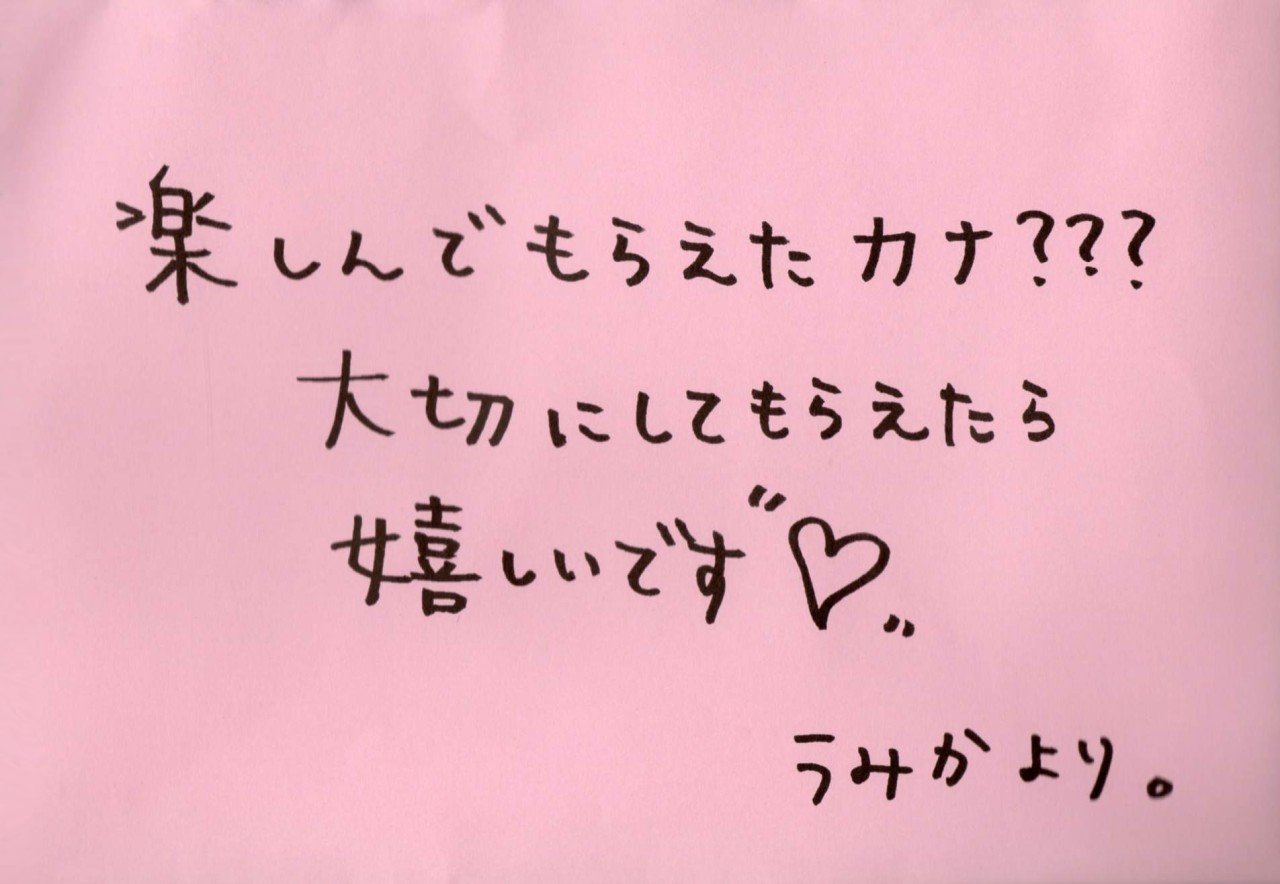 楽しんでもらえたカナ???
大切にしてもらえたら
嬉しいです♡
うみかより。